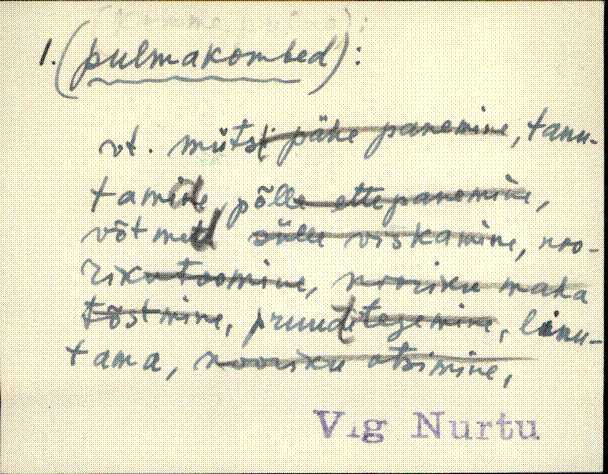 1. (pulmakombed):
vt. mütsi pähe panemine, tanu-
tamine, põlle ettepanemine,
võtmed sülle viskamine, noo-
rikutoomine, nooriku maha
tõstmine, pruuditegemine, linu-
tama, nooriku otsimine,
Vig Nurtu